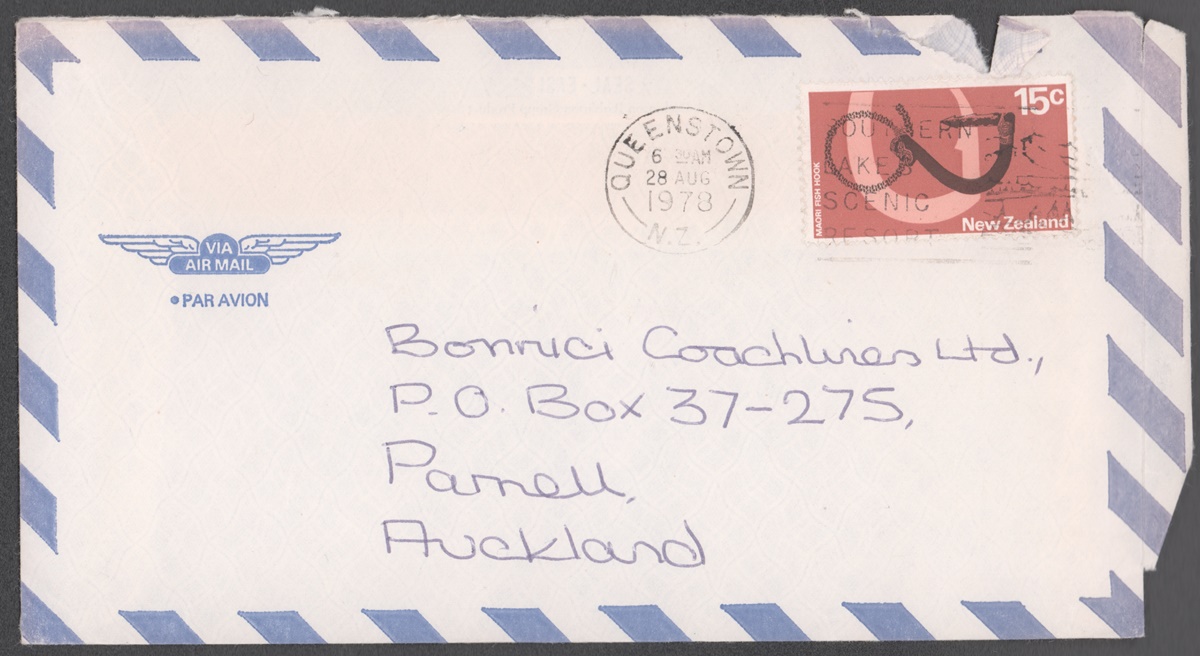 15c
MAORI FISH HOOK
New Zealand
QUEENSTOWN
6 30AM
28 AUG
1978
N.Z.
SOUTHERN
LAKES
SCENIC
RESORT
VIA
AIR MAIL
PAR AVION
Bonnici Coachlines Ltd.,
P.O. Box 37-275,
Parnell,
Auckland